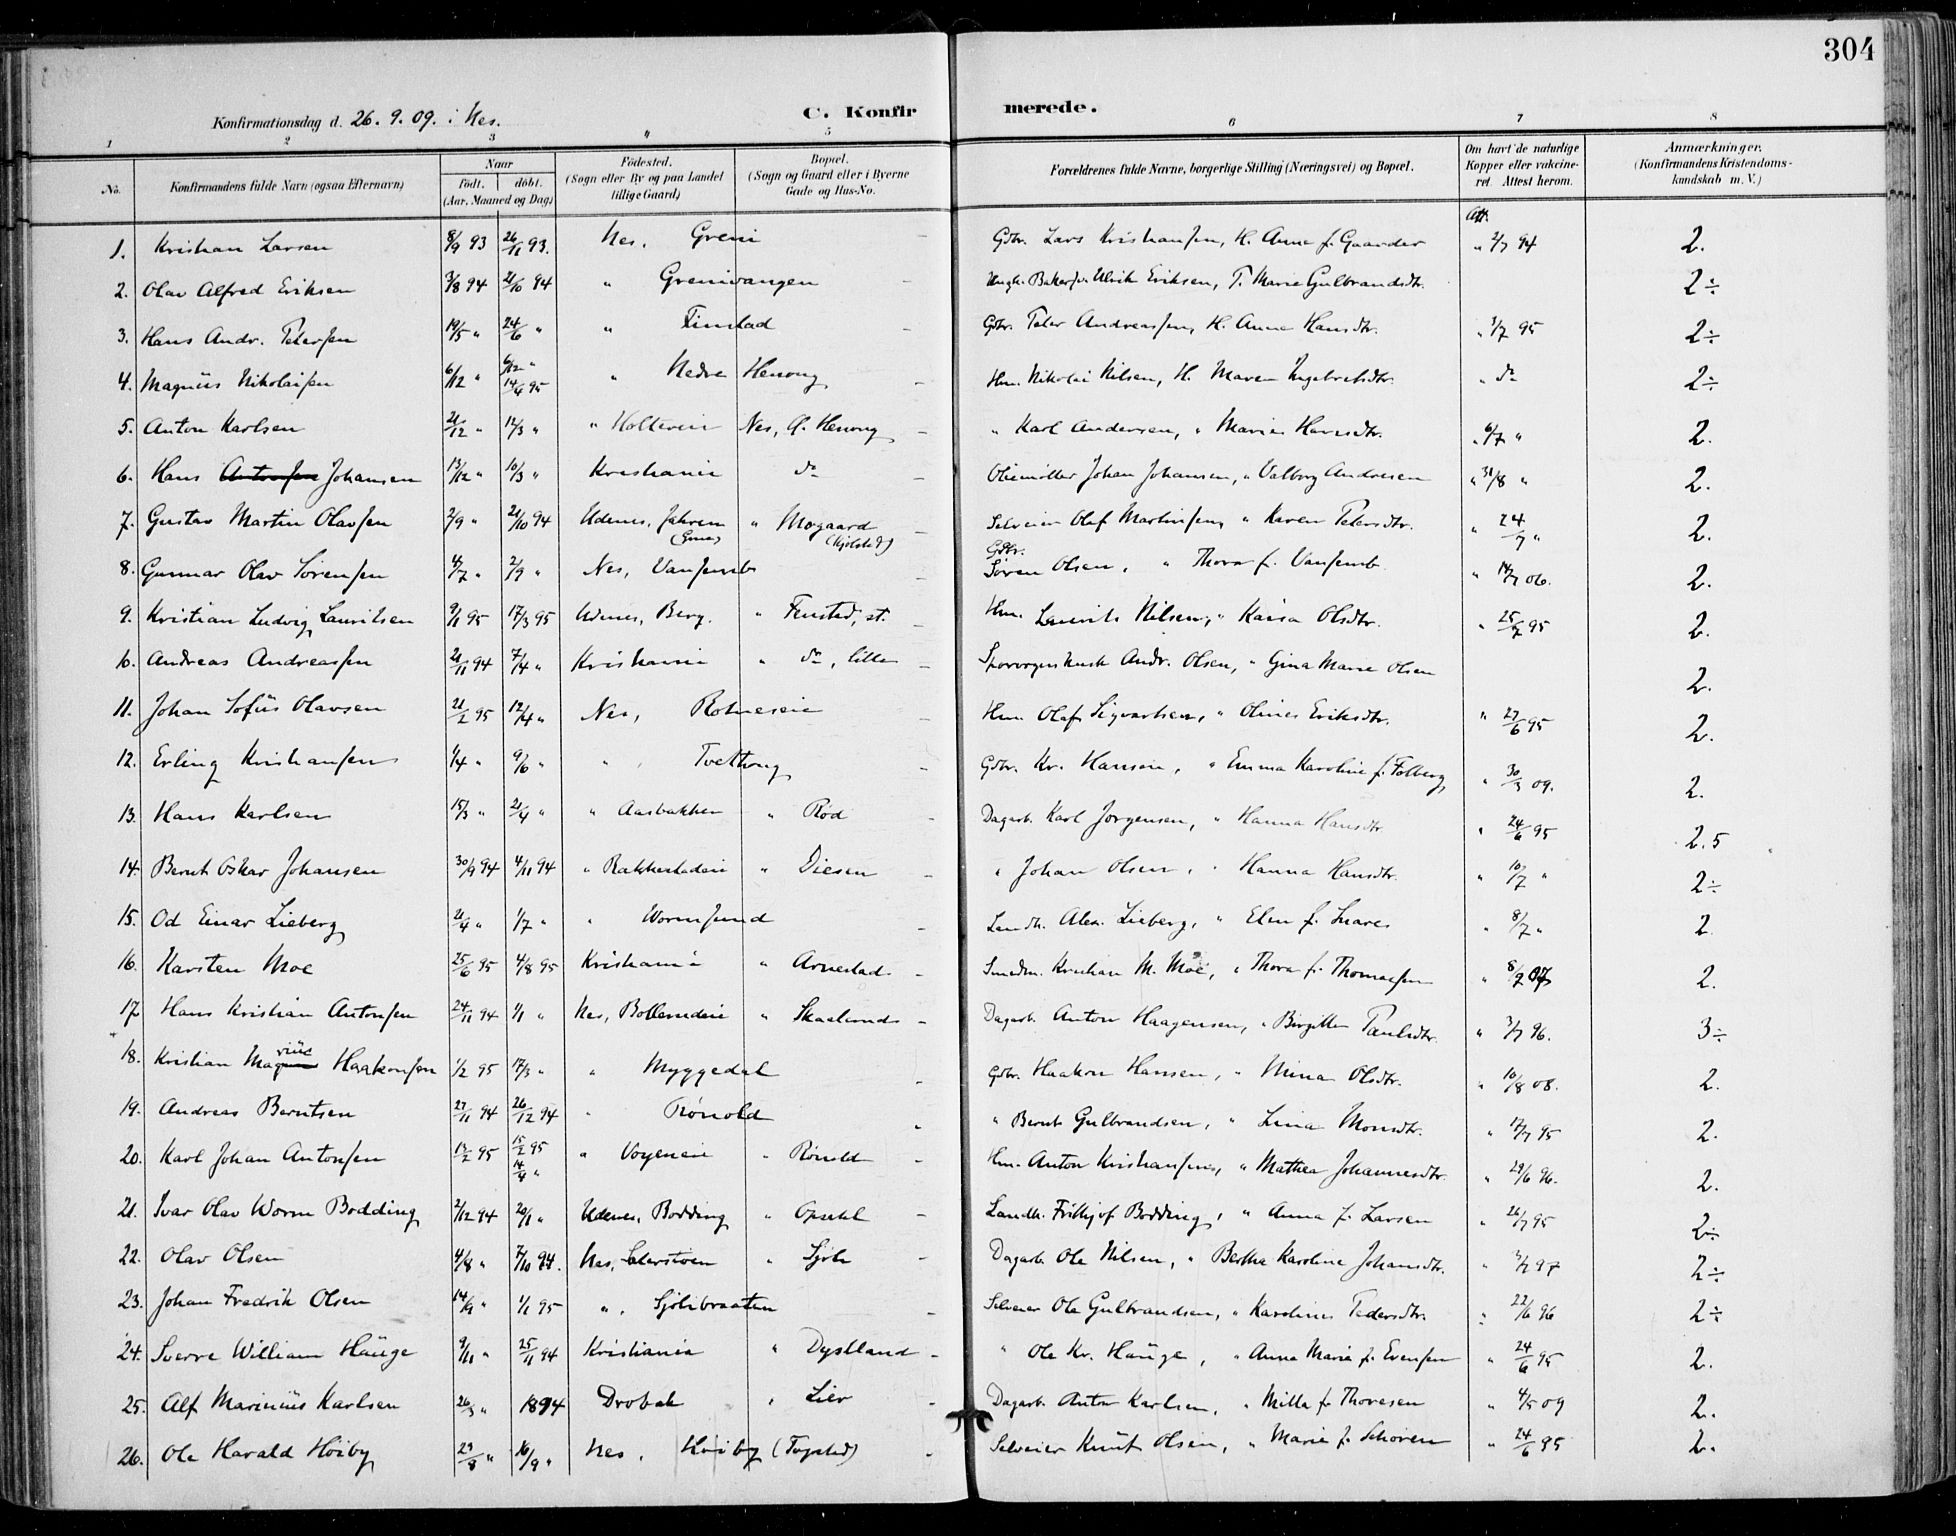 304
Konfirmationsdag d. 26. 9. 09. i Nes. C. Konfirmerede.
1 2 3 " 5 6 7 8
No. Konfirmandens fulde Navn (ogsaa Efternavn) Naar født. døbt. (Aar, Maaned og Dag) Fødested. (Sogn eller By og paa Landet tillige Gaard) Bopæl. (Sogn og Gaard eller i Byerne Gade og Hus-No. Forældrenes fulde Navne, borgerlige Stilling (Næringsvei) og Bopæl. Om havt de naturlige Kopper eller vakcineret. Attest herom. Anmærkninger. (Konfirmandens Kristendomskundskab m. V.)
Att.
1. Kristian Larsen 8/9 93 26/11 93. Nes, Greni Gdbr. Lars Kristiansen, H. Anna f. Gaarder " 2/7 94 2.
2. Olav Alfred Eriksen 3/8 94 21/10 94 " Grenivangen Ungk. Ulrik Eriksen, T. Marie Gulbrandsdtr. 2÷
3. Hans Andr. Petersen 19/5 " 24/6 " " Finstad Gdbr. Peter Andreassen, H. Anna Hansdtr. " 1/7 95 2÷
4. Magnus Nikolaisen 6/12 " 6/12 " 14/4 95 " Nedre Henong Hm. Nikolai Nilsen, H. Maren Ingebretsdtr. " do 2÷
5. Anton Karlsen 21/12 " 12/3 " " Holteneie Nes, Ø. Henong " Karl Andersen, " Marie Hansdtr. " 6/7 " 2.
6. Hans Antonsen Johansen 13/12 " 10/3 " Kristiania do Oliemöller Johan Johansen, " Valborg Andresen " 31/8 " 2.
7. Gustav Martin Olavsen 2/9 " 21/10 94 Udenes, Jahren " Mogaard (Kjölstad) Selveier Olaf Martinsen, " Karen Petersdtr. " 24/7 " 2.
8. Gunnar Olav Sörensen 4/7 " 2/9 " Nes, Vansemb Gdbr. Sören Olsen, " Thora f. Vansemb " 14/7 06. 2.
9. Kristian Ludvig Lauritsen 9/1 95 17/3 95 Udenes, Berg. " Fenstad, st. Hm. Laurits Nilsen, " Kaisa Olsdtr. " 25/7 95 2.
10. Andreas Andreassen 21/11 94 7/4 " Kristiania " do, lille Sporvognskusk Andr. Olsen, " Gina Marie Olsen 2.
11. Johan Sofus Olavsen 21/2 95 12/4 " Nes, Rotneseie Hm. Olaf Sigvartsen, " Oline Eriksdtr. " 27/6 95 2.
12. Erling Kristiansen 1/4 " 9/6 " " Tvettong Gdbr. Kr. Hansen, " Emma Karoline f. Folberg " 30/3 09. 2.
13. Hans Karlsen 15/3 " 21/4 " " Aasbakken " Rød Dagarb. Karl Jørgensen, " Hanna Hansdtr. " 24/6 95 2.5
14. Bernt Oskar Johansen 30/9 94 4/11 94 " Rakkestadeie " Diesen " Johan Olsen, " Hanna Hansdtr. " 10/7 " 2÷
15. Od Einar Lieberg 21/4 " 1/7 " " Wormsund Landh. Alex. Lieberg, " Elen f. Snare " 8/7 " 2
16. Karsten Moe 25/6 95 4/8 95 Kristiania " Arnestad Smedm. Kristian M. Moe, " Thora f. Thomassen " 8/2 07 2.
17. Hans Kristian Antonsen 24/11 94 1/1 " Nes, Bollerudeie " Skaelund Dagarb. Anton Haagensen, " Birgitte Paulsdtr. " 3/7 96. 3÷
18. Kristian Marius Haakonsen 1/2 95 17/3 " " Myggedal Gdbr. Haakon Hansen, " Mina Olsdtr. " 10/8 08. 2.
19. Andreas Berntsen 27/11 94 26/12 94 " Rönold " Bernt Gulbrandsen, " Lina Monsdtr. " 17/7 95 2.
20. Karl Johan Antonsen 13/2 95 15/2 95 14/4 " " Voyeneie " Rönold Hm. Anton Kristiansen, " Mathea Johannesdtr. " 29/6 96. 2.
21. Ivar Olav Worm Bodding 2/12 94 20/1 " Udenes, Bodding " Opsahl Landh. Frithjof Bodding, " Anna f. Larsen " 26/7 95 2÷
22. Olav Olsen 4/8 " 7/10 94. Nes, " Sjöli Dagarb. Ole Nilsen, " Bertha Karoline Johansdtr. " 3/7 97 2÷
23. Johan Fredrik Olsen 14/9 " 1/1 95 " , Sjölibraaten Selveier Ole Gulbrandsen, " Karoline Pedersdtr. " 22/6 96 2÷
24. Sverre William Hauge 9/11 " 25/11 94 Kristiania " Dystland " Ole Kr. Hauge, " Anna Marie f. Evensen " 24/6 95 2.
25. Alf Marinius Karlsen 26/3 " 1894 Drøbak " Lier Dagarb. Anton Karlsen, " Milla f. Thoresen " 4/5 09 2.
26. Ole Harald Höiby 29/8 " 16/9 " Nes, Höiby (Fogstad) Selveier Knut Olsen, " Marie f. Schøren " 24/6 95 2.